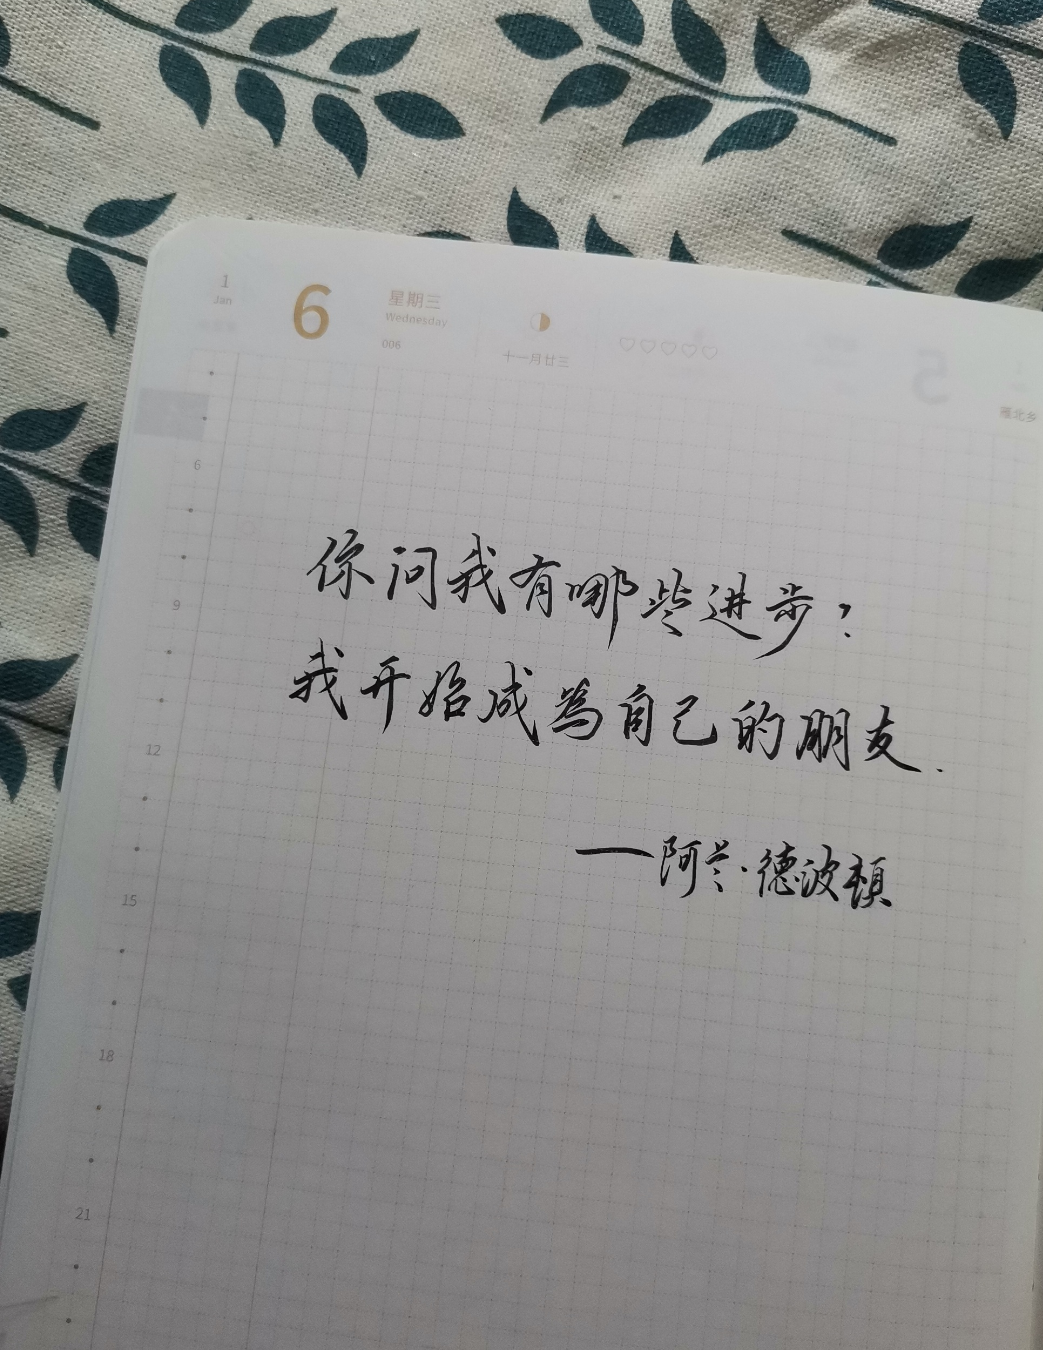 1
Jan
6
星期三
Wednesday
006
十一月廿三
5
雁北乡
6
9
12
15
18
21
你问我有哪些进步?
我开始成為自己的朋友.
——阿兰·德波顿